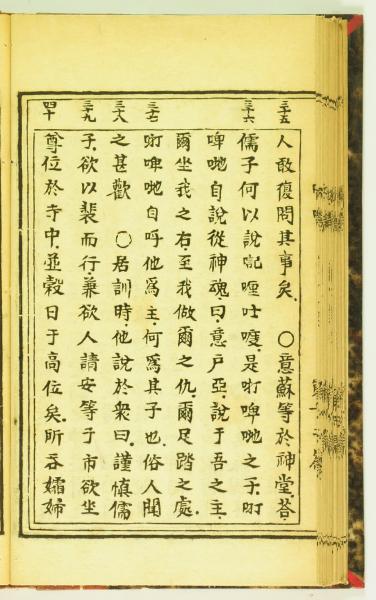 三十五
人敢復問其事矣。〇意蘇等於神堂荅。
三十六
儒子何以說喱吐是叮啤哋之子。叮
啤哋自說從神魂曰。意户亞。說于吾之主。
爾坐我之右。至我做爾之仇。爾足踏之處。
三十七
叮啤哋自呼他爲主。何爲其子也。俗人聞
三十八
之甚歡 〇居訓時。他說於衆曰。謹慎儒
三十九
子。欲以裴而行。兼欲人請安等于市。欲坐
四十
尊位於寺中。並穀日于高位矣。所吞孀婦